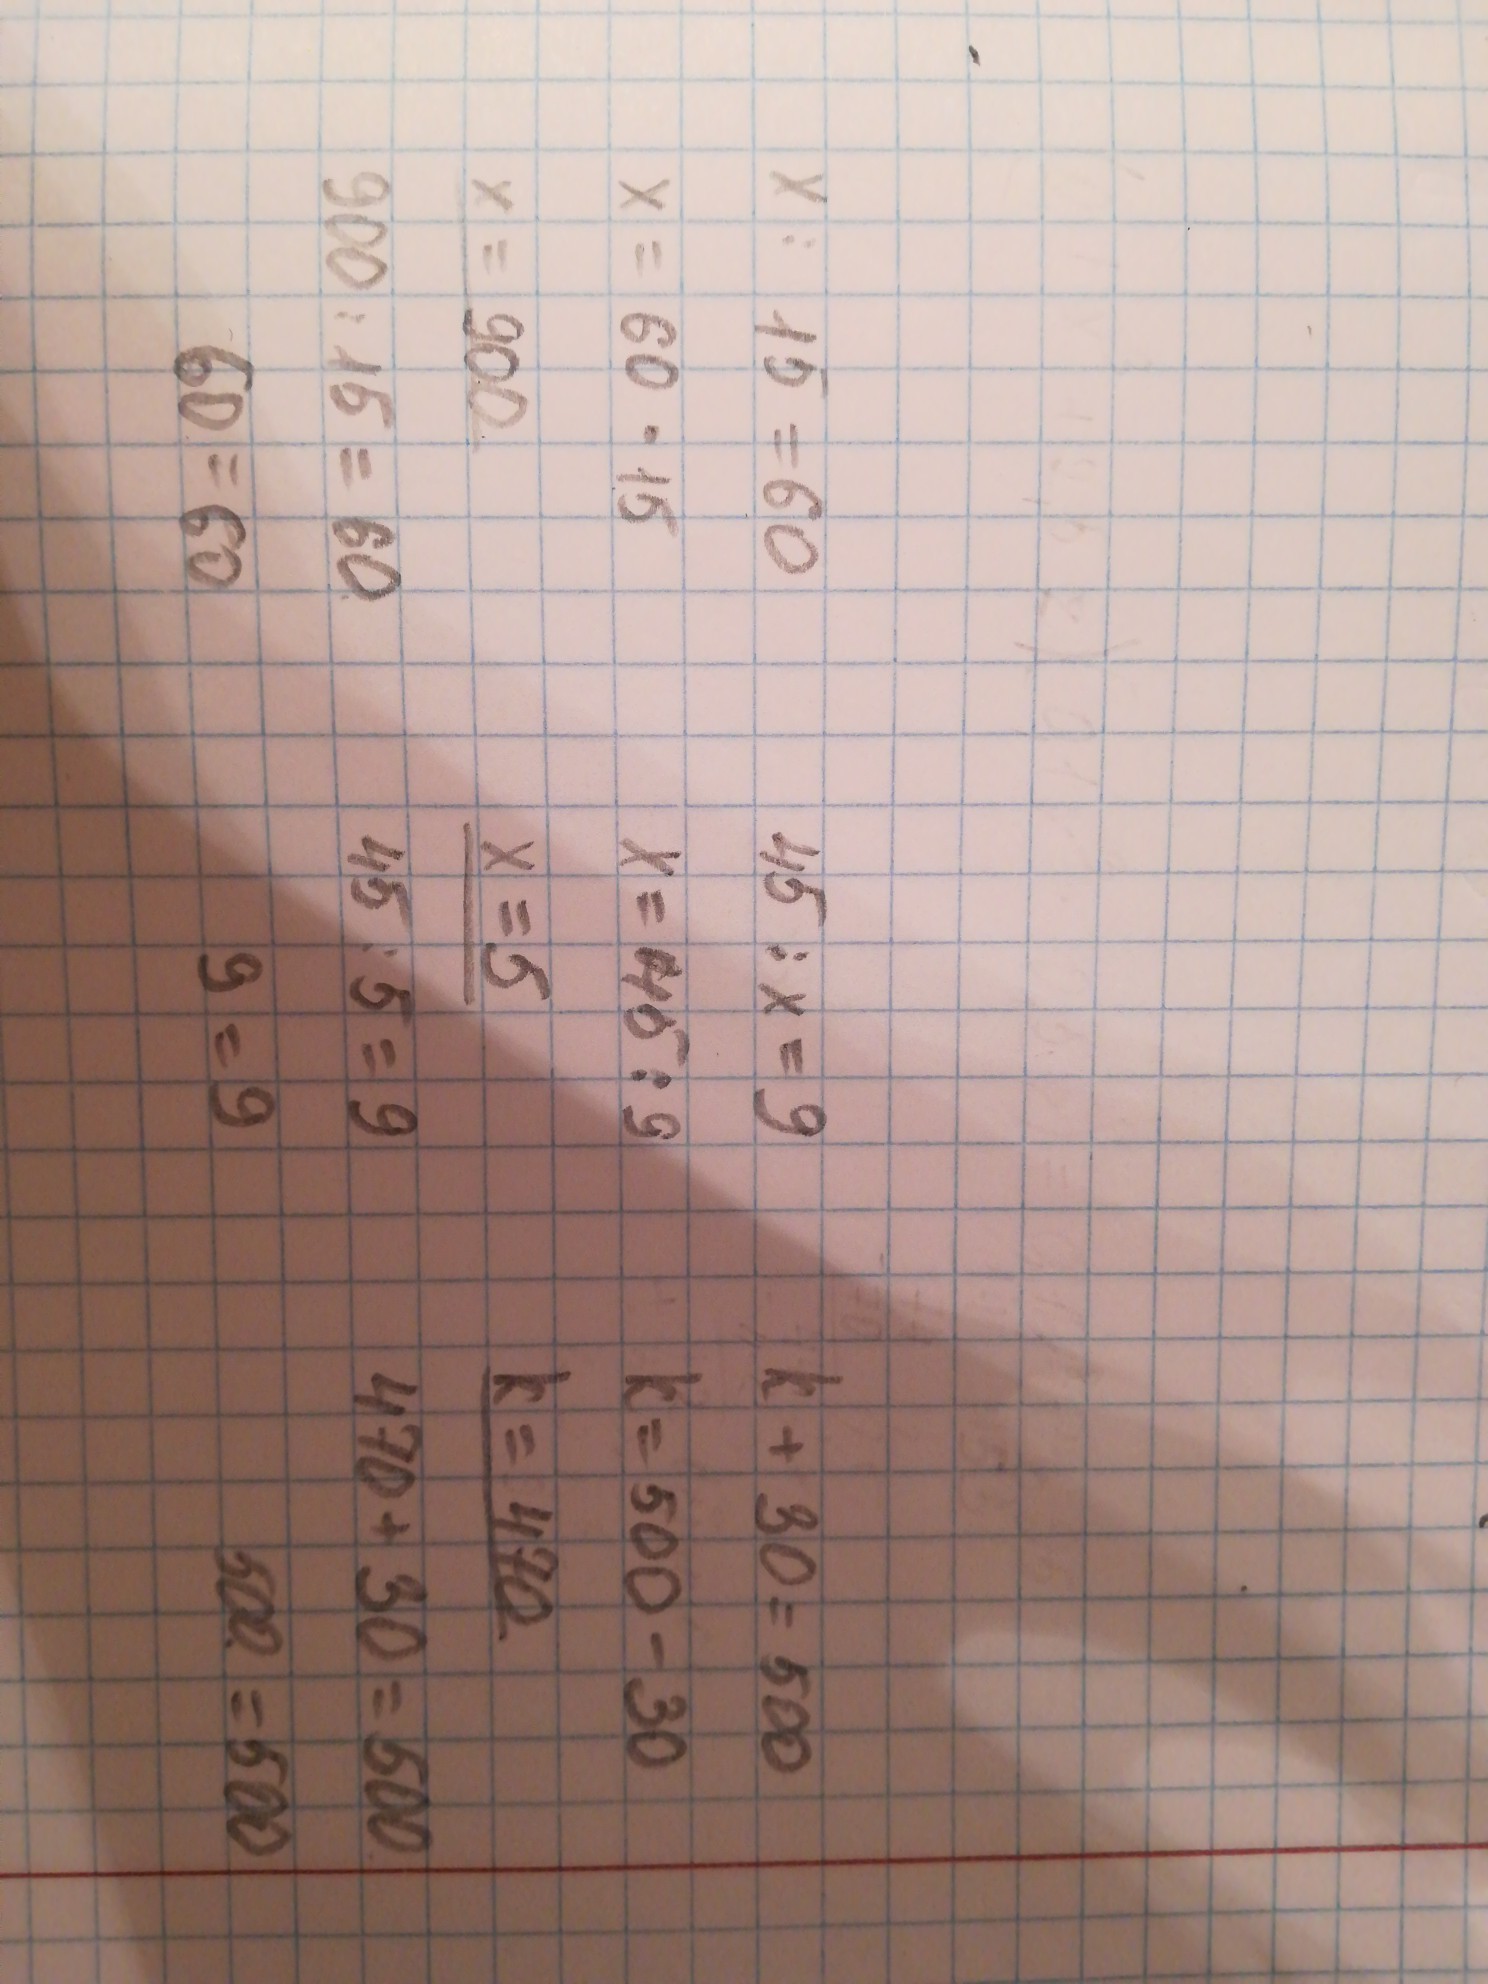 x : 15 = 60
x = 60 · 15
x = 900
900 : 15 = 60
60 = 60
45 : x = 9
x = 45 : 9
x = 5
45 : 5 = 9
9 = 9
k + 30 = 500
k = 500 - 30
k = 470
470 + 30 = 500
500 = 500